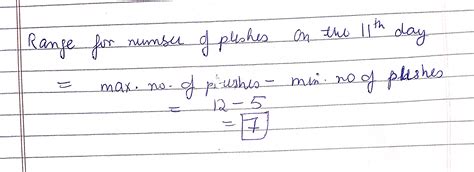 Range for number of plushes on the 11th day
= max. no. of plushes - min. no of plushes
= 12 - 5
= 7